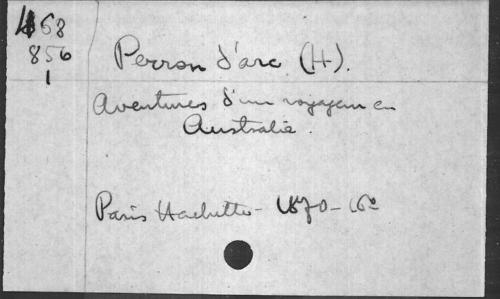 468
856
1
Perron d'arc (H).
Aventures d'un voyageur en
Australie.
Paris Hachette - 1870 - 16º